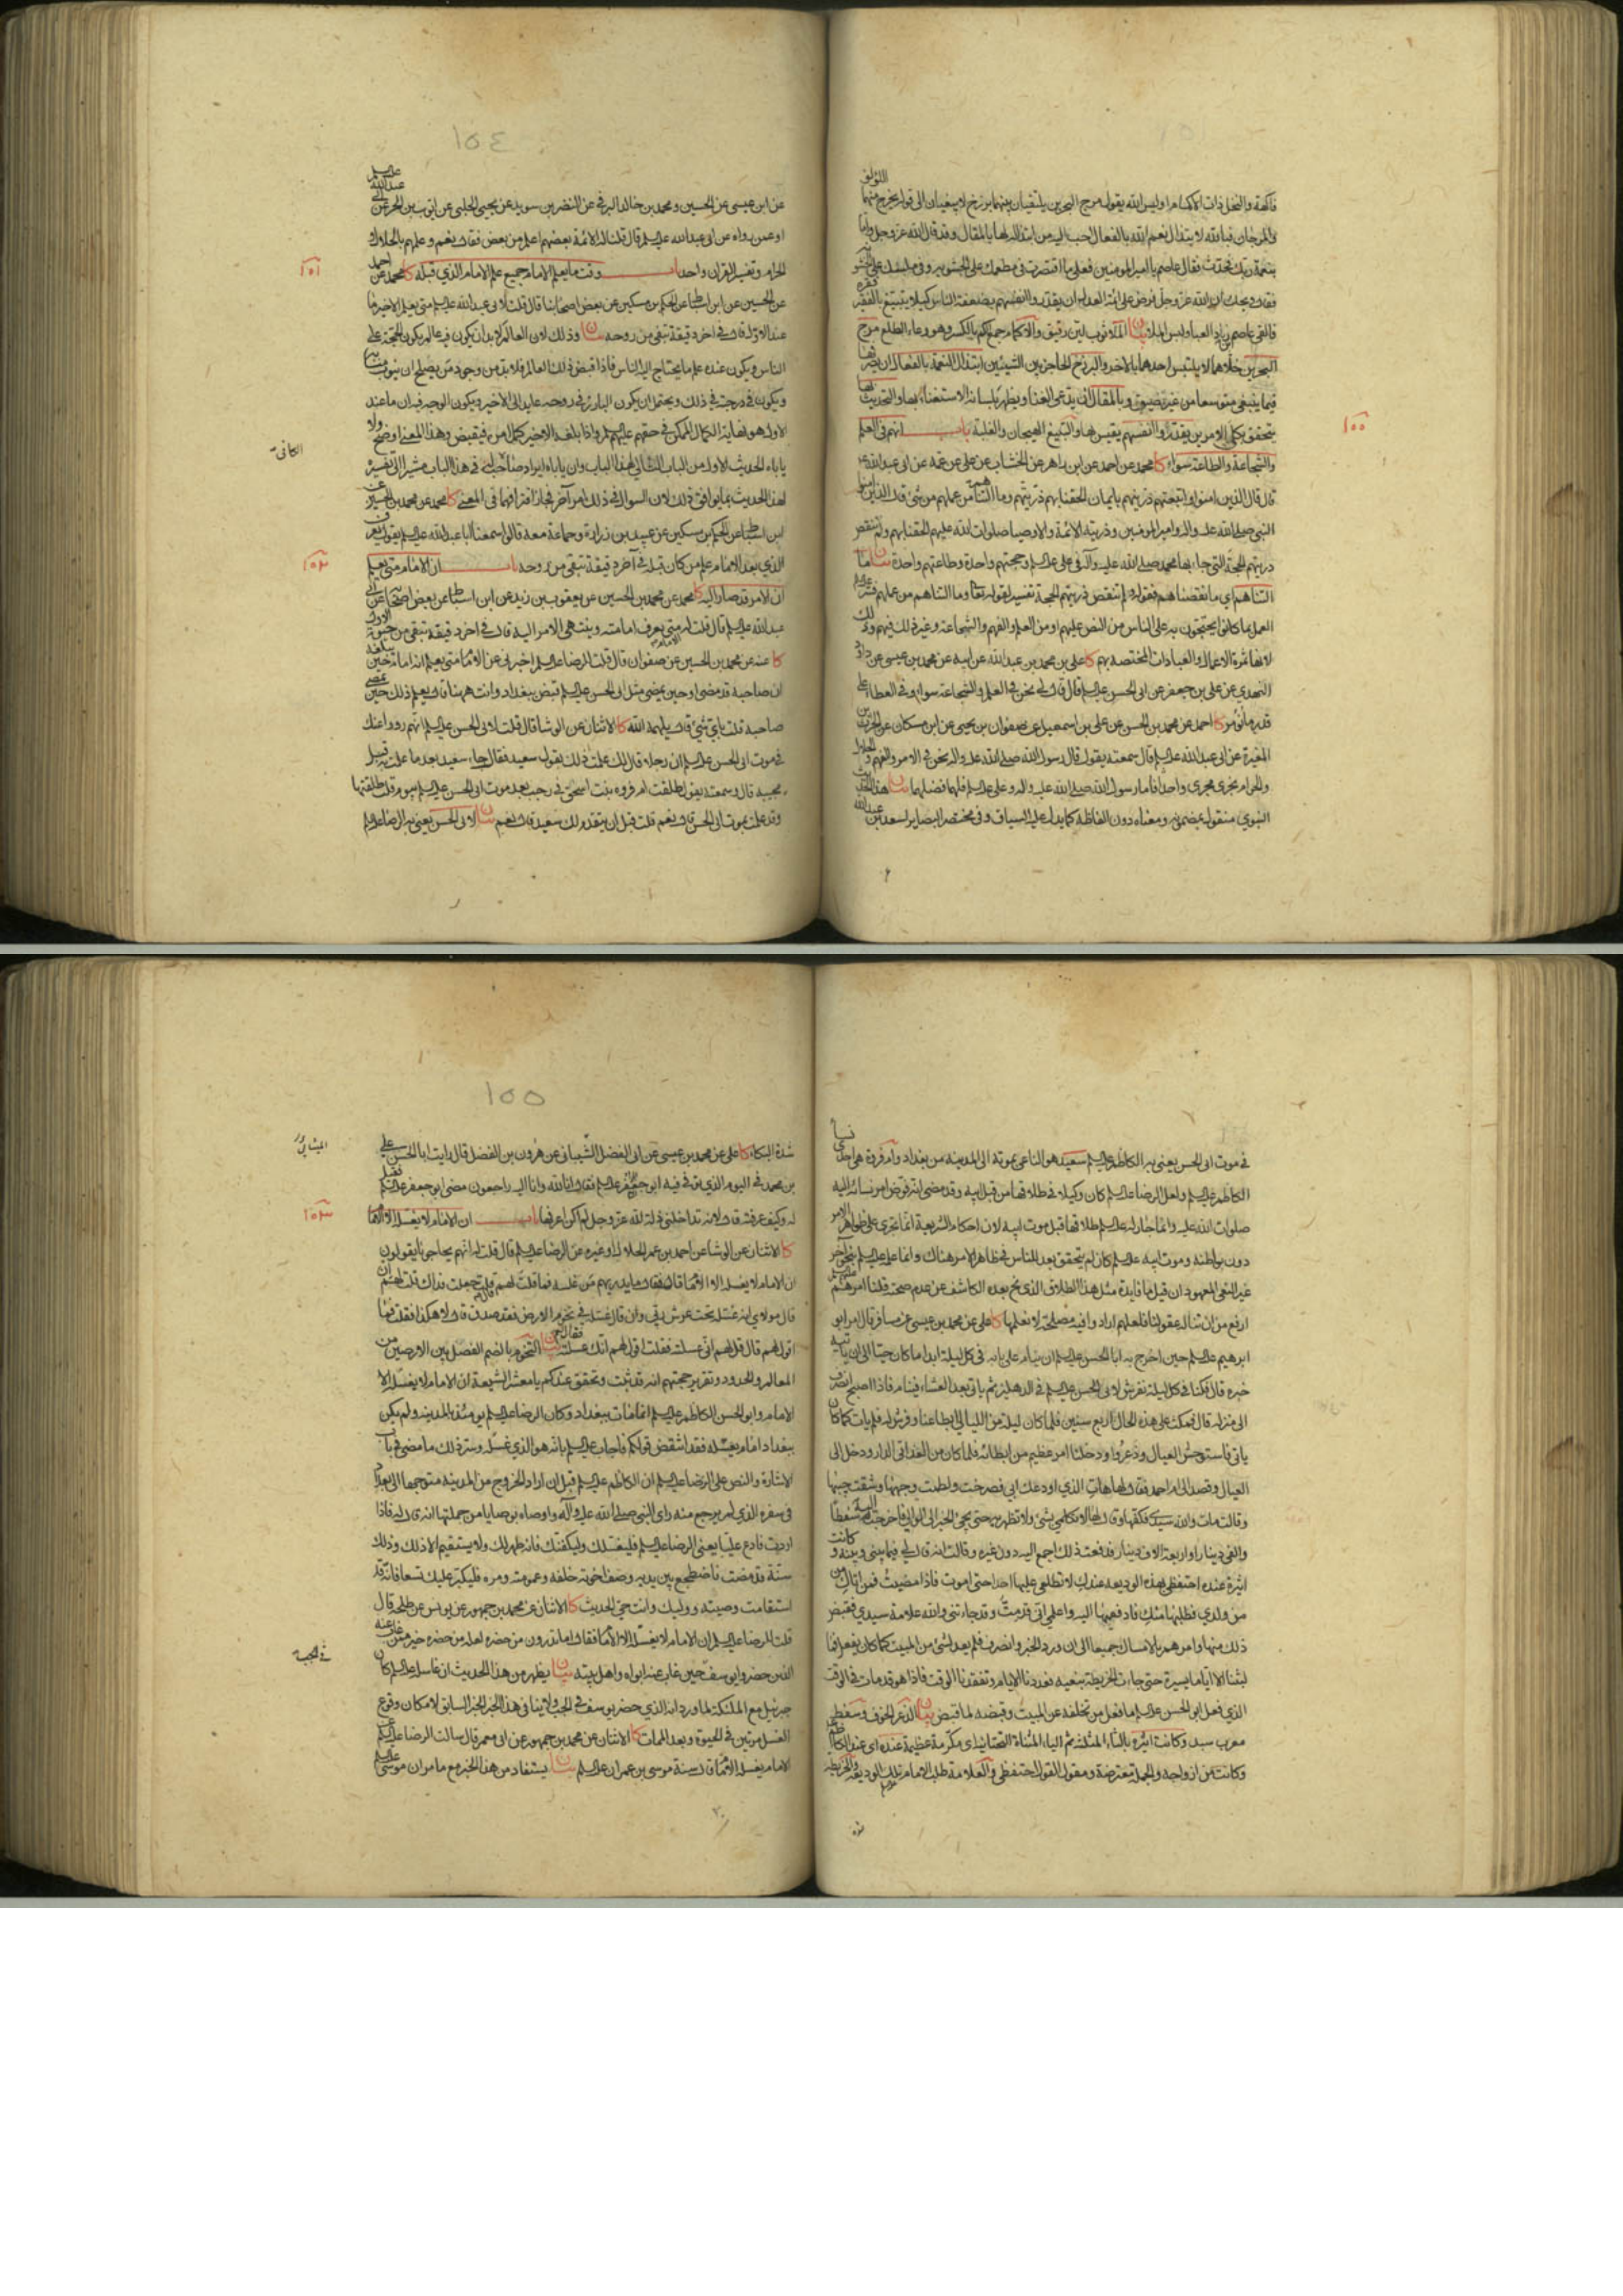 فاكهة والنخل ذات الاكمام اوليس الله يقول مرج البحرين يلتقيان بينهما برزخ لا يبغيان الى قوله يخرج منهما اللؤلؤ
والمرجان فبالله لابتذال نعم الله بالفعال احب اليه من ابتذاله لها بالمقال وقد قال الله عز وجل واما
بنعمة ربك فحدث فقال عاصم يا امير المؤمنين فعلى ما اقتصرت في مطعمك على الجشوبة وفي ملبسك على الخشونة
فقال ويحك ان الله عز وجل فرض على ائمة العدل ان يقدروا انفسهم بضعفة الناس كيلا يتبيغ بالفقير فقره
فالقى عاصم بن زياد العباء ولبس الملاء بيان الملاء ثوب لين رقيق والاكمام جمع كم بالكسر وهو وعاء الطلع مرج
البحرين خلاهما لا يلتبس احدهما بالاخر والبرزخ الحاجز بين الشيئين ابتذال النعمة بالفعال ان يصرفها
فيما ينبغي متوسعا من غير تضييق وبالمقال ان يدعي الغنا ويظهر بلسانه الاستغناء بها والتحديث
يتحقق بكلى الامرين يقدروا انفسهم يقيسوها والتبيغ الهيجان والغلبة باب انهم في العلم
والشجاعة والطاعة سواء كا محمد عن احمد عن ابن زاهر عن الخشاب عن علي عن عمه عن ابي عبد الله ع
قال قال الذين امنوا واتبعتهم ذريتهم بايمان الحقنا بهم ذريتهم وما التناهم من عملهم من شئ قال الذين امنوا
النبي صلى الله عليه واله وامير المؤمنين وذريته الائمة والاوصياء صلوات الله عليهم الحقنا بهم ولم ننقص
ذريتهم الحجة التي جاء بها محمد صلى الله عليه وآله في علي عليه السلم وحجتهم واحدة وطاعتهم واحدة بيان ما
التناهم اي ما نقصناهم فقوله ولم تنقص ذريتهم الحجة تفسير لقوله تعالى وما التناهم من عملهم فسر
العمل بما كانوا يحتجون به على الناس من النص عليهم او من العلم والفهم والشجاعة وغير ذلك فيهم وذلك
لانها ثمرة الاعمال والعبادات المختصة بهم كا علي بن محمد بن عبد الله عن ابيه عن محمد بن عيسى عن داود
النهدي عن علي بن جعفر عن ابي الحسن عليه السلم قال قال لي نحن في العلم والشجاعة سواء وفي العطايا على
قدر ما نؤمر كا احمد عن محمد بن الحسن عن علي بن اسمعيل عن صفوان بن يحيى عن ابن مسكان عن الحرث بن
المغيرة عن ابي عبد الله عليه السلم قال سمعته يقول قال رسول الله صلى الله عليه واله نحن في الامر والفهم والحلال
والحرام نجري مجرى واحدا فاما رسول الله صلى الله عليه واله وعلي عليه السلم فلهما فضلهما بيان هذا الحديث
النبوي منقول بمضمونه ومعناه دون الفاظه كما يدل عليه السياق وفي مختصر البصاير لسعد بن عبد الله
١٥٤
عن ابن عيسى عن الحسين ومحمد بن خالد البرقي عن النضر بن سويد عن يحيى الحلبي عن ايوب بن الحر عن ابي عبد الله عليه السلم
او عمن رواه عن ابي عبد الله عليه السلم قال قلت له الائمة بعضهم اعلم من بعض فقال نعم وعلمهم بالحلال و
الحرام وتفسير القران واحد باب وقت ما يعلم الامام جميع علم الامام الذي قبله كا محمد عن احمد
عن الحسين عن ابن اسباط عن الحكم بن مسكين عن بعض اصحابنا قال قلت لابي عبد الله عليه السلم متى يعلم الاخير ما
عند الاول قال في اخر دقيقة تبقى من روحه بيان وذلك لان العالم لا بد ان يكون فيه عالم يكون الحجة على
الناس ويكون عنده علم ما يحتاج اليه الناس فاذا قبض ذلك العالم فلا بد من وجود من يصلح ان ينوب منابه
ويكون في درجته في ذلك ويحتمل ان يكون البارز في روحه عايدا الى الاخير ويكون الوجه فيه ان ما عند
الاول هو نهاية الكمال الممكن في حقهم عليهم السلم واذا بلغه الاخير كمل من فيقبض وهذا المعنى اوضح ولا
ياباه الحديث الاول من الباب التالي لهذا الباب وان باباه ايراد صاحب الكافي في هذا الباب مشيرا الى تفسير
هذا الحديث بما يوافق ذلك لان السوال في ذلك امر آخر فجاز افتراقهما في المعنى كا محمد عن محمد بن الحسين عن
ابن اسباط عن الحكم بن مسكين عن عبيد بن زرارة وجماعة معه قالوا سمعنا ابا عبد الله عليه السلم يقول يعرف
الذي بعد الامام علم من كان قبله في آخر دقيقة تبقى من روحه باب ان الامام متى يعلم
ان الامر قد صار اليه كا محمد عن محمد بن الحسين عن يعقوب بن زيد عن ابن اسباط عن بعض اصحابنا عن ابي
عبد الله عليه السلم قال قلت له متى يعرف امامته وينتهي الامر اليه قال في اخر دقيقة تبقى من حيوة الاول
كا عنه عن محمد بن الحسين عن صفوان قال قلت للرضا عليه السلم اخبرني عن الامام متى يعلم انه امام حين يبلغه
ان صاحبه قد مضى او حين يمضي مثل ابي الحسن عليه السلم قبض ببغداد وانت ههنا قال يعلم ذلك حين يمضي
صاحبه قلت باي شئ قال يلهمه الله كا الاثنان عن الوشا قال قلت لابي الحسن عليه السلم انهم رووا عنك
في موت ابي الحسن عليه السلم ان رجلا قال لك علمت ذلك بقول سعيد فقال جاء سعيد بعد ما علمت به قبل
مجيئه قال وسمعته يقول طلقت ام فروه بنت اسحق في رجب بعد موت ابي الحسن عليه السلم بيوم قلت طلقتها
وقد علمت بموت ابي الحسن قال نعم قلت قبل ان يقدم لك سعيد قال نعم بيان لابي الحسن يعني به الرضا عليه السلم
في موت ابي الحسن يعني به الكاظم عليه السلم سعيد هو الناعي بموته الى المدينة من بغداد وام فروة هي احدى نسا
الكاظم عليه السلم ولعل الرضا عليه السلم كان وكيلا في طلاقها من قبل ابيه وقد مضى انه فوض امر نسائه اليه
صلوات الله عليه وانما جاز له عليه السلم طلاقها قبل موت ابيه لان احكام الشريعة انما تجري على ظواهر الامر
دون بواطنه وموت ابيه عليه السلم كان لم يتحقق بعد للناس في ظاهر الامر هناك وانما علمه عليه السلم بنحو آخر
غير النعي المعهود ان قيل ما فايدة مثل هذا الطلاق الذي يجئ بعده الكاشف عن عدم صحته قلنا امرهم
ارفع من ان تناله عقولنا فلعلهم ارادوا فيه مصلحة لا نعلمها كا علي عن محمد بن عيسى عن مسافر قال امر ابو
ابرهيم عليه السلم حين اخرج به ابا الحسن عليه السلم ان ينام على بابه في كل ليلة ابدا ما كان حيا الى ان ياتيه
خبره قال فكنا في كل ليلة نفرش لابي الحسن عليه السلم في الدهليز ثم ياتي بعد العشاء فينام فاذا اصبح انصرف
الى منزله قال فمكث على هذه الحال اربع سنين فلما كان ليلة من الليالي ابطا عنا وفرش له فلم يات كما كان
ياتي فاستوحش العيال وذعروا ودخلنا امر عظيم من ابطائه فلما كان من الغد اتى الدار ودخل الى
العيال وقصد الى ام احمد فقال لها هات الذي اودعك ابي فصرخت ولطمت وجهها وشقت جيبها
وقالت مات والله سيدي فكفها وقال لها لا تكلمي بشئ ولا تظهريه حتى يجئ الخبر الى الوالي فاخرجت اليه سفطا
والفي دينار او اربعة الاف دينار فدفعت ذلك اجمع اليه دون غيره وقالت انه قال لي فيما بيني وبينه وكانت
اثيرة عنده احتفظي بهذه الوديعة عندك لا تطلعي عليها احدا حتى اموت فاذا مضيت فمن اتاك من
من ولدي فطلبها منك فادفعيها اليه واعلمي اني قد مت وقد جاءتني والله علامة سيدي فقبض
ذلك منها وامرهم بالامساك جميعا الى ان ورد الخبر وانصرف فلم يعد لشئ من المبيت كما كان يفعل فما
لبثنا الا اياما يسيرة حتى جاءت الخريطة بنعيه فعددنا الايام وتفقدنا الوقت فاذا هو قد مات في الوقت
الذي فعل ابو الحسن عليه السلم ما فعل من تخلفه عن المبيت وقبضه لما قبض بيان الذعر الخوف وسفط
معرب سبد وكانت اثيرة بالثاء المثلثة ثم الياء المثناة التحتانية اي مكرمة عظيمة عنده اي عند الكاظم
وكانت من ازواجه والجملة معترضة ومقول القول احتفظي والعلامة طلب الامام تلك الوديعة والخريطة
١٥٥
شدة البكاء كا علي عن محمد بن عيسى عن ابي الفضل الشهباني عن هرون بن الفضل قال رايت ابا الحسن علي
بن محمد في اليوم الذي توفي فيه ابو جعفر عليه السلم فقال انا لله وانا اليه راجعون مضى ابو جعفر عليه السلم فقيل
له وكيف عرفت قال لانه تداخلني ذلة لله عز وجل لم اكن اعرفها باب ان الامام لا يغسله الا الامام
كا الاثنان عن الوشا عن احمد بن عمر الحلال او غيره عن الرضا عليه السلم قال قلت له انهم يحاجونا يقولون
ان الامام لا يغسله الا الامام قال فقال ما يدريهم من غسله فما قلت لهم قال فقلت جعلت فداك قلت لهم ان
قال مولاي انه غسله تحت عرش ربي وان قال غسله في تخوم الارض فقد صدق قال لا هكذا فقلت فما
اقول لهم قال قل لهم اني غسلته فقلت اقول لهم انك غسلته فقال نعم بيان التخوم بالضم الفصل بين الارضين من
المعالم والحدود وتقرير حجتهم انه قد ثبت وتحقق عندكم يا معشر الشيعة ان الامام لا يغسله الا
الامام وابو الحسن الكاظم عليه السلم انما مات ببغداد وكان الرضا عليه السلم يومئذ بالمدينة ولم يكن
ببغداد امام يغسله فقد انتقض قولكم فاجاب عليه السلم بانه هو الذي غسله وسر ذلك ما مضى في باب
الاشارة والنص على الرضا عليه السلم ان الكاظم عليه السلم قبل ان اراد الخروج من المدينة متوجها الى بغداد
في سفره الذي لم يرجع منه راى النبي صلى الله عليه وآله واوصاه بوصايا من جملتها انه قال له فاذا
اردت فادع عليا يعني الرضا عليه السلم فليغسلك وليكفنك فانه طهر لك ولا يستقيم الا ذلك وذلك
سنة قد مضت فاضطجع بين يديه وصف اخوته خلفه وعمومته ومره فليكبر عليك تسعا فانه قد
استقامت وصيته ووليك وانت حي الحديث كا الاثنان عن محمد بن جمهور عن يونس عن طلحة قال
قلت للرضا عليه السلم ان الامام لا يغسله الا الامام فقال اما تدرون من حضره لعله من حضره خير ممن غاب عنه
الذين حضروا يوسف حين غاب عنه ابواه واهل بيته بيان يظهر من هذا الحديث ان غاسله عليه السلم كان
جبرئيل مع الملئكة لما ورد انه الذي حضر يوسف في الجب ولا ينافي هذا الخبر الخبر السابق لامكان وقوع
الغسل مرتين في الحيوة وبعد الممات كا الاثنان عن محمد بن جمهور عن ابي معمر قال سالت الرضا عليه السلم عن
الامام يغسله الامام قال سنة موسى بن عمران عليه السلم بيان يستفاد من هذا الخبر مع ما مر ان موسى عليه السلم